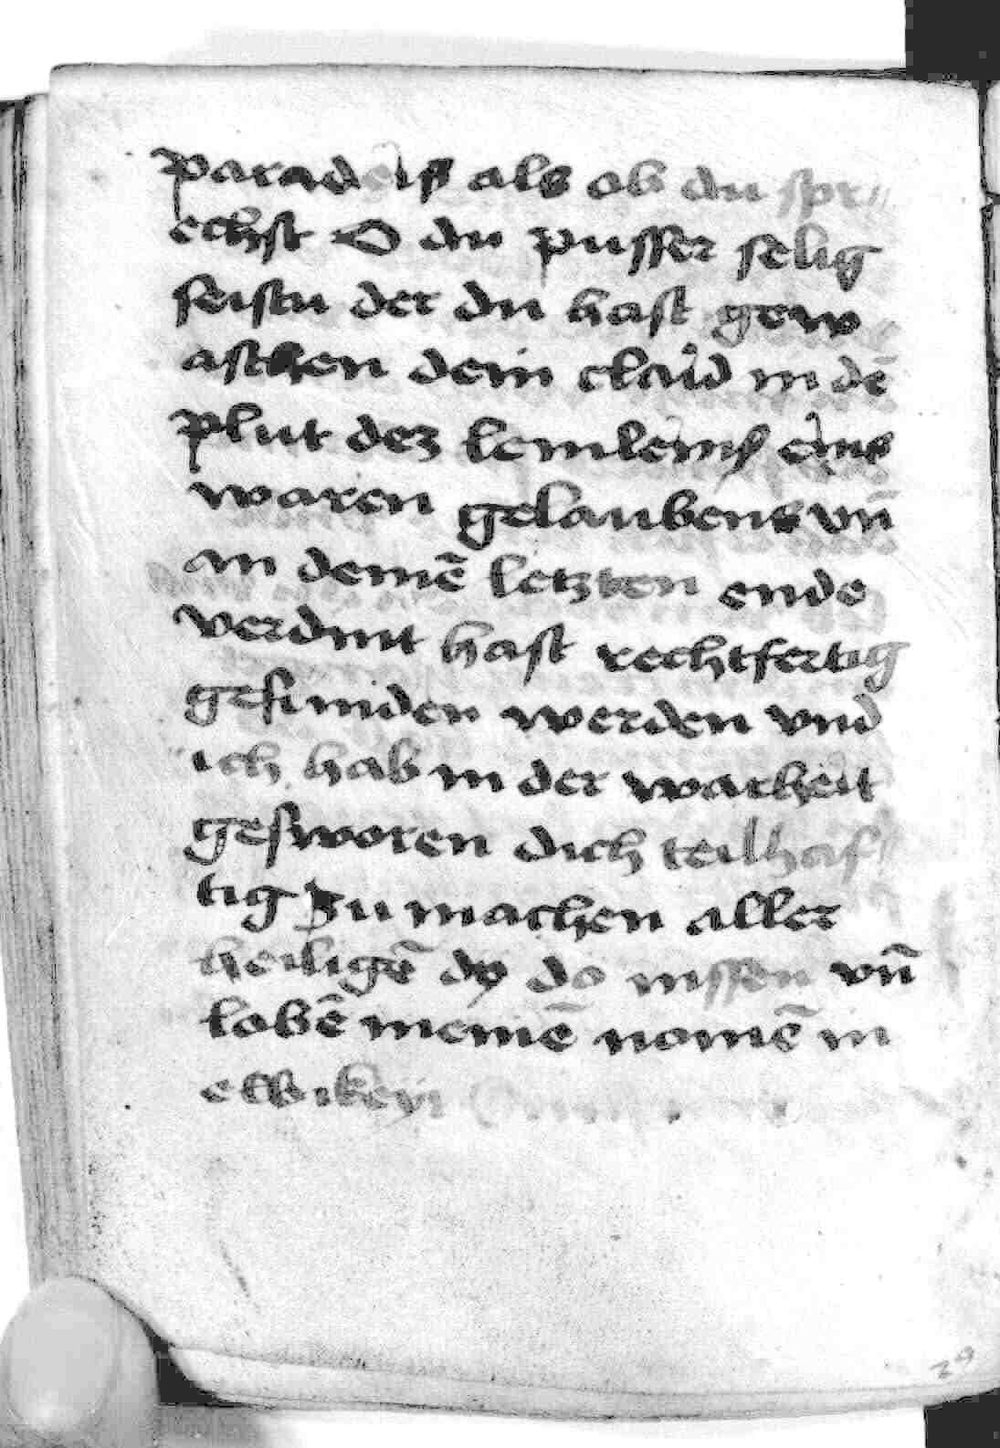 paradeiß als ob du spr„
echst O du pusser selig
seistu der du hast gew
aschen dein claid in dē
plut dez lemleins eins
waren gelaubens vn̄
an deinē letzten ende
verdint hast rechtfertig
gefunden werden vnd
ich hab in der warheit
gesworen dich teilhaf„
tig zu machen aller
heiligē dy do
vn̄
lobē meinē nomē in
29